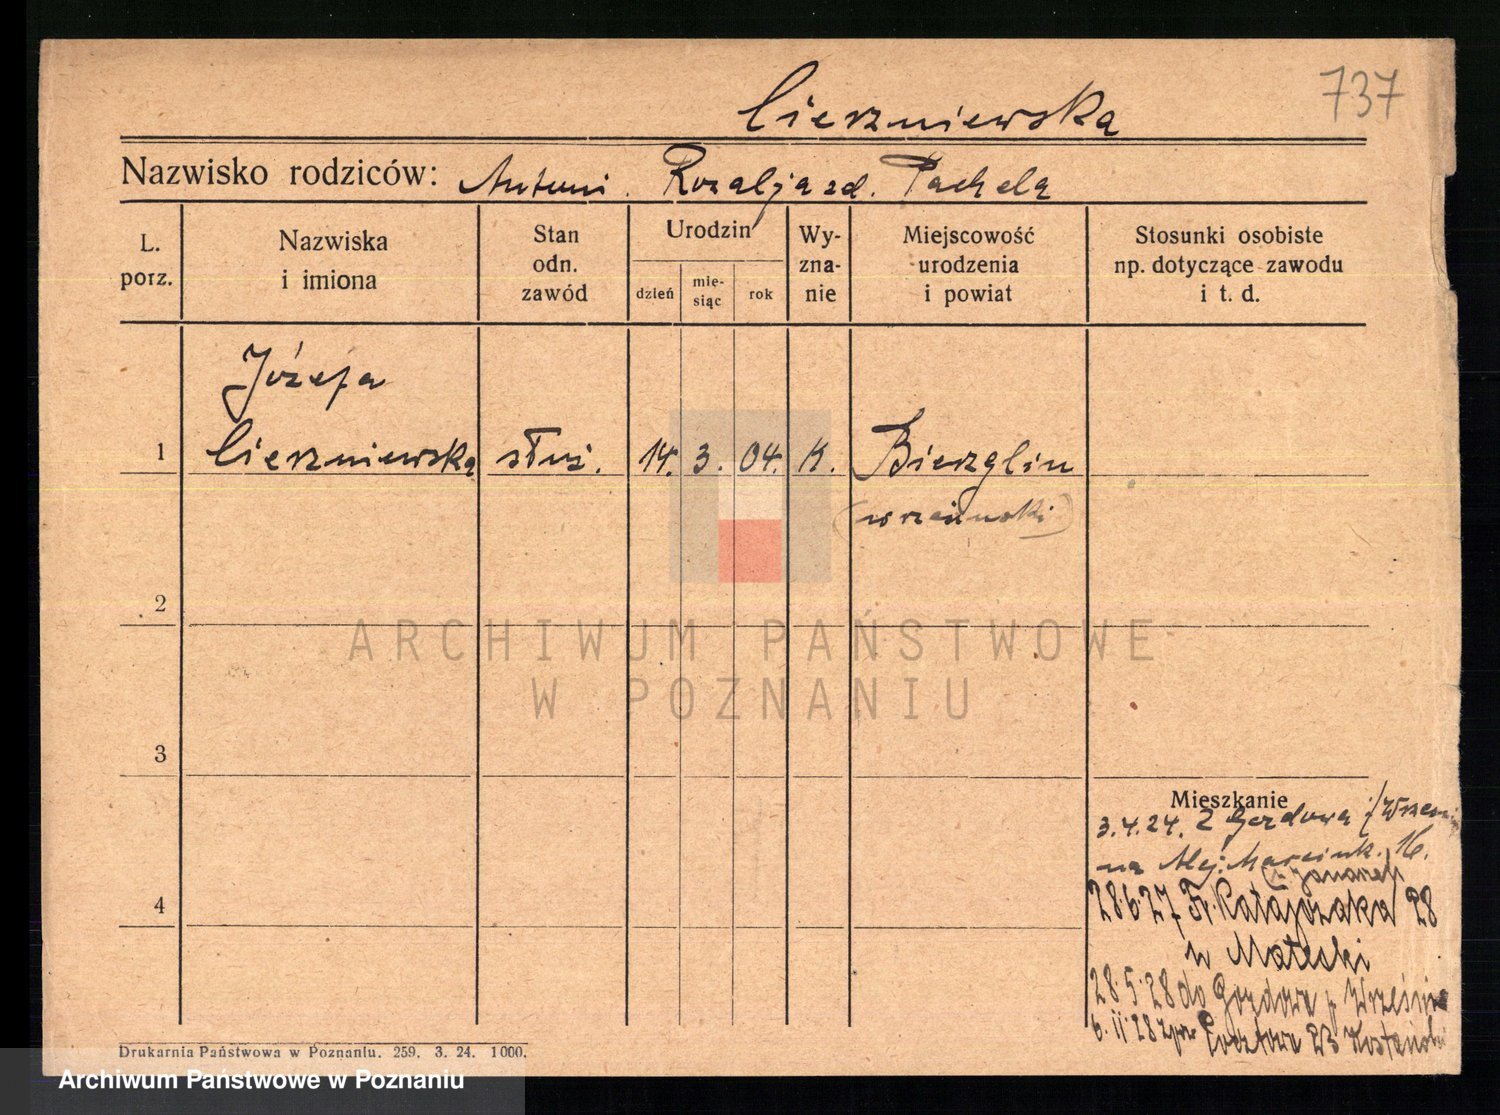 737
Cierzniewska
Nazwisko rodziców: Antoni. Rozalja zd. Pachela
L. porz.
Nazwiska i imiona
Stan odn. zawód
Urodzin
dzień
mie-siąc
rok
Wy-zna-nie
Miejscowość urodzenia i powiat
Stosunki osobiste np. dotyczące zawodu i t. d.
Józefa
1 Cierzniewska służ. 14. 3. 04. K. Bierzglin
(wrzesiński)
2
ARCHIWUM PAŃSTWOWE
W POZNANIU
3
Mieszkanie
3.4.24. z Gozdowa
na Alej. Marcink. 16.
4
28.6.27 Fr. Ratajczaka 28
28.5.28 do Gozdowa p. Września
6.11.28 Pocztowa 23
Drukarnia Państwowa w Poznaniu. 259. 3. 24. 1000.
Archiwum Państwowe w Poznaniu